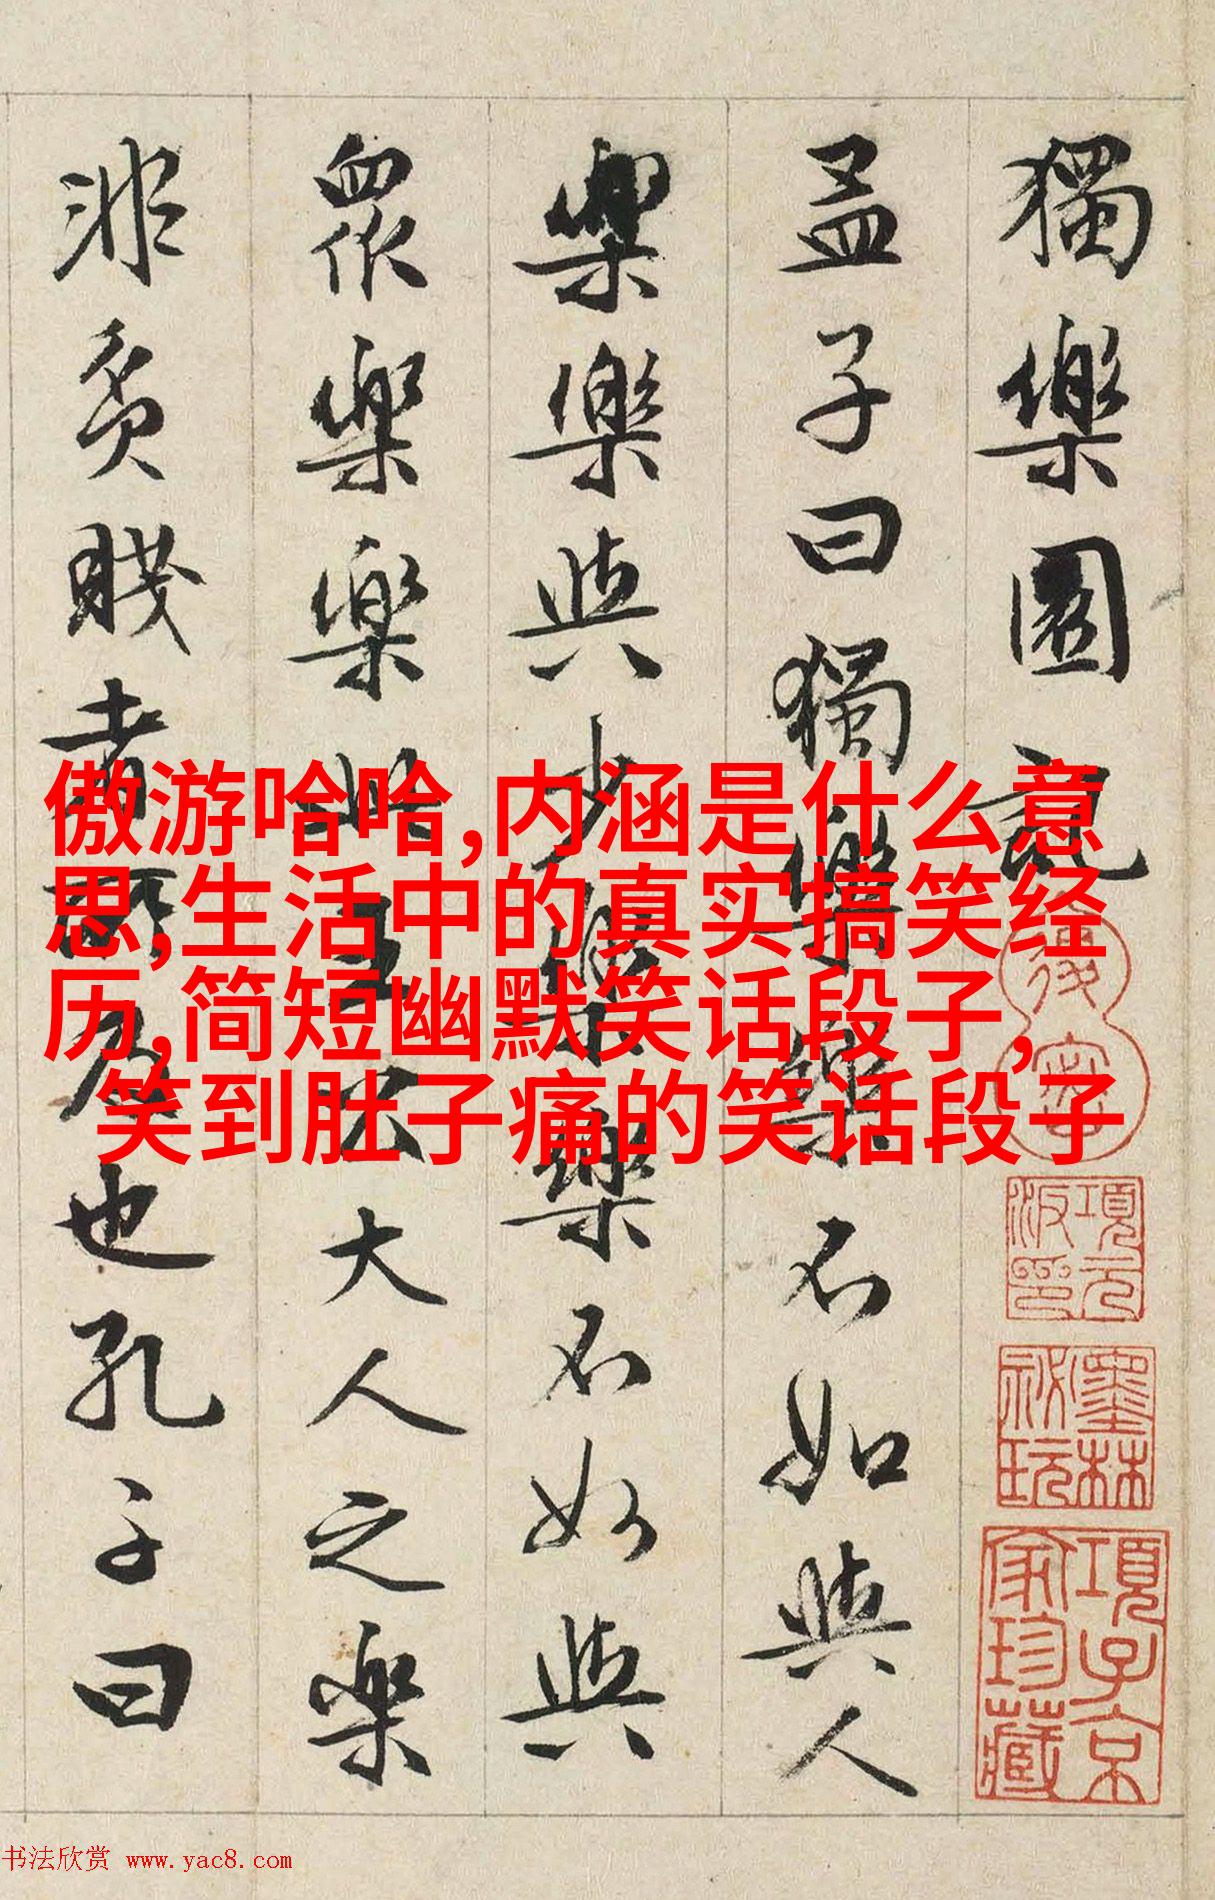 獨樂園記
孟子曰獨樂樂不如與人
樂樂與少樂樂不如與
眾樂樂此王公大人之樂
非貧賤者所及也孔子曰
傲游哈哈,内涵是什么意
思,生活中的真实搞笑经
历,简短幽默笑话段子,
笑到肚子痛的笑话段子
項元汴印
墨林秘玩
項子京家珍藏
书法欣赏 www.yac8.com